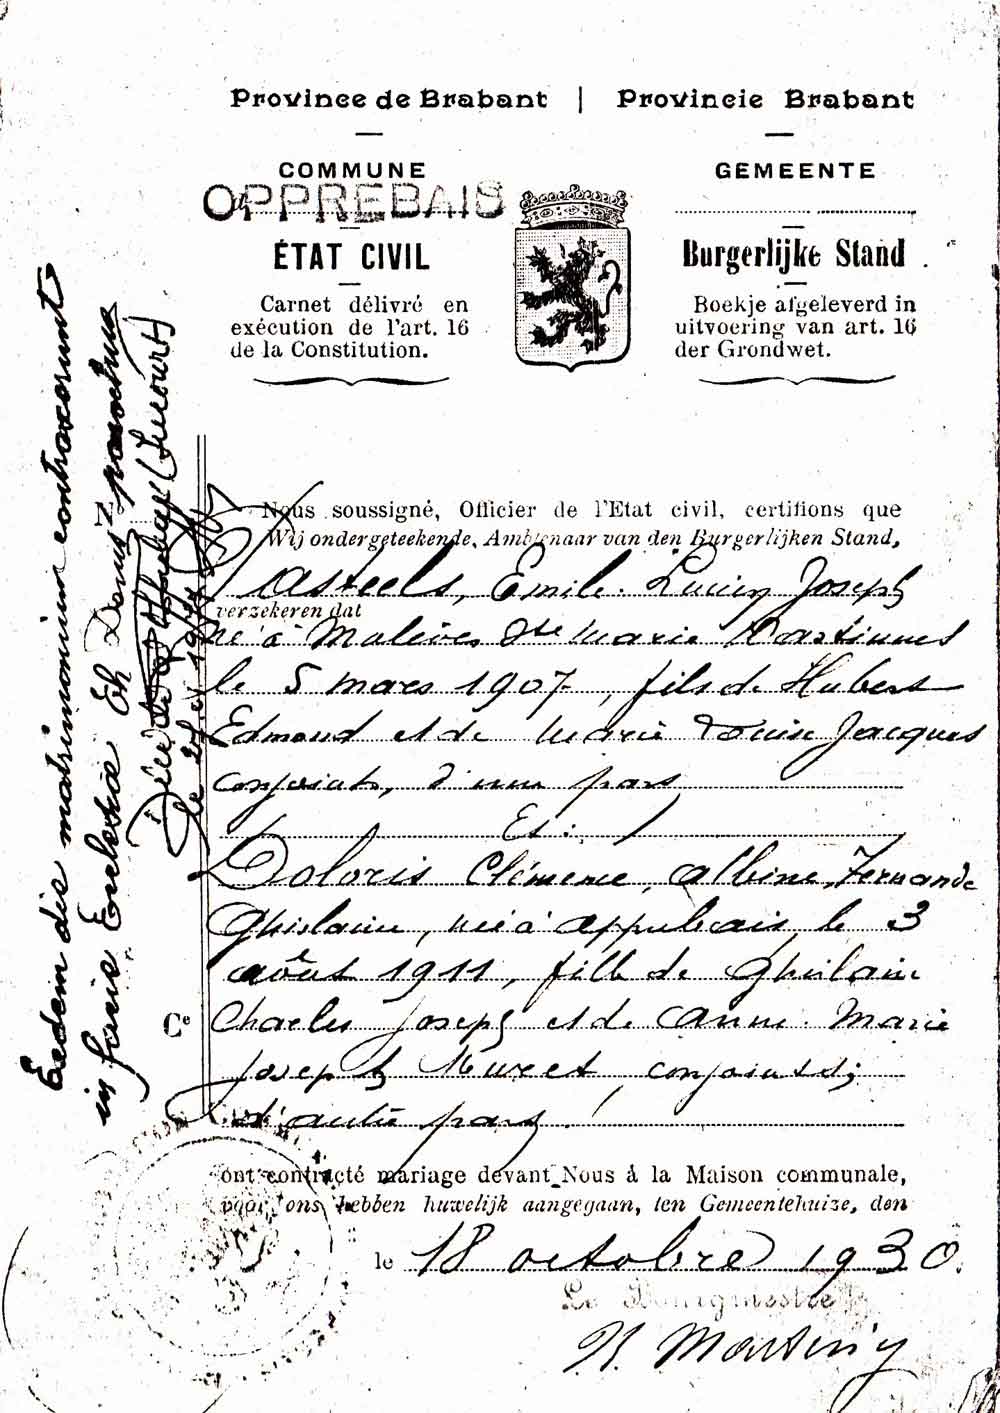 Province de Brabant | Provincie Brabant
COMMUNE
OPPREBAIS
ÉTAT CIVIL
Carnet délivré en
exécution de l'art. 16
de la Constitution.
GEMEENTE
Burgerlijke Stand
Boekje afgeleverd in
uitvoering van art. 16
der Grondwet.
N°
Nous soussigné, Officier de l'Etat civil, certifions que
Wij ondergeteekende, Ambtenaar van den Burgerlijken Stand,
Casteels, Emile Lucien Joseph
verzekeren dat
né à Malèves Ste Marie Wastinnes
le 5 mars 1907, fils de Hubert
Edmond et de Marie Louise Jacques
conjoints, d'une part
Et :
Doloris Clémence, Albine, Fernande
Ghislaine, née à Opprebais, le 3
août 1911, fille de Ghislain
Ce Charles Joseph et de Anne Marie
Joseph conjoints;
d'autre part!
ont contracté mariage devant Nous à la Maison communale,
voor ons hebben huwelijk aangegaan, ten Gemeentehuize, den
le 18 octobre 1930.
Le Bourgmestre
Martiny
Eadem die matrimonium contraxerunt
in facie Ecclesiæ Eh Denis parochus